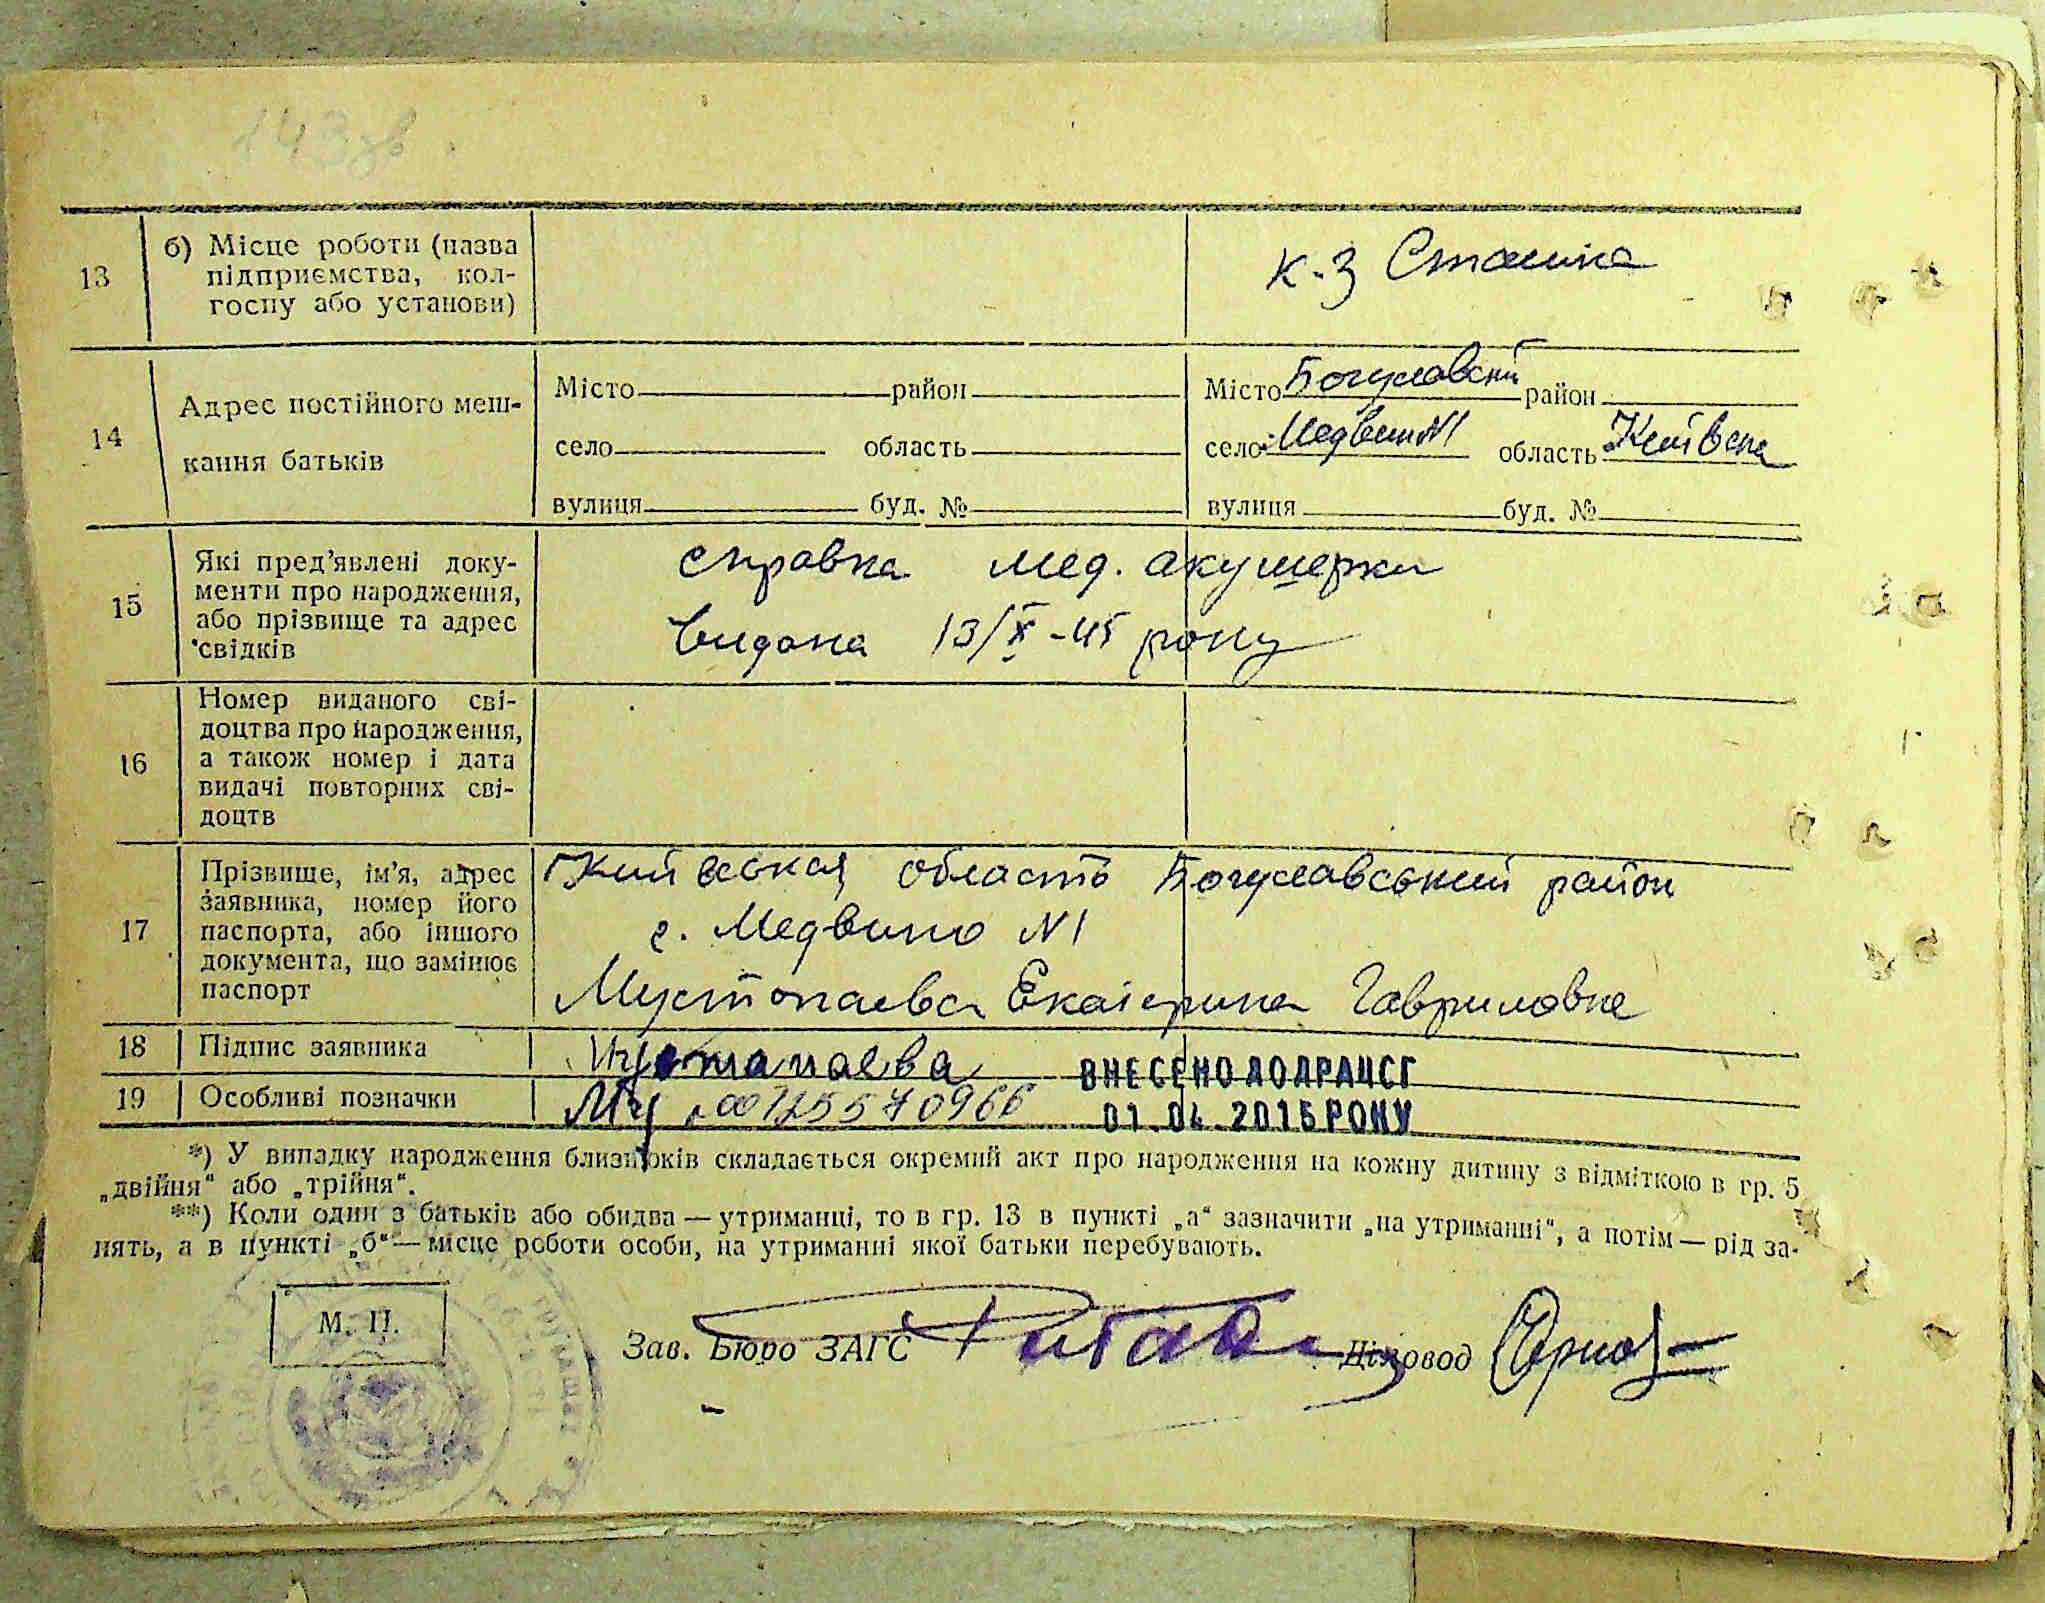 143зв
13
б) Місце роботи (назва
підприємства, кол-
госпу або установи)
к-з Сталіна
14
Адрес постійного меш-
кання батьків
Місто район
село область
вулиця буд. №
Місто Богуславский район
село Медвин N1 область Київска
вулиця буд. №
15
Які пред’явлені доку-
менти про народження,
або прізвище та адрес
свідків
справка мед. акушерки
видана 13/X-45 року
16
Номер виданого сві-
доцтва про народження,
а також номер і дата
видачі повторних сві-
доцтв
17
Прізвище, ім’я, адрес
заявника, номер його
паспорта, або іншого
документа, що замінює
паспорт
Київская область Богуславський район
с. Медвино N1
Мустопаева Екатерина Гавриловна
18 Підпис заявника
Мустапаева
ВНЕСЕНО ДО ДРАЦСГ
19 Особливі позначки
00125570966
01.04.2015 РОКУ
*) У випадку народження близнюків складається окремий акт про народження на кожну дитину з відміткою в гр. 5
„двійня“ або „трійня“.
**) Коли один з батьків або обидва — утриманці, то в гр. 13 в пункті „а“ зазначити „на утриманні“, а потім — рід за-
нять, а в пункті „б“ — місце роботи особи, на утриманні якої батьки перебувають.
М. П.
Зав. Бюро ЗАГС
Діловод